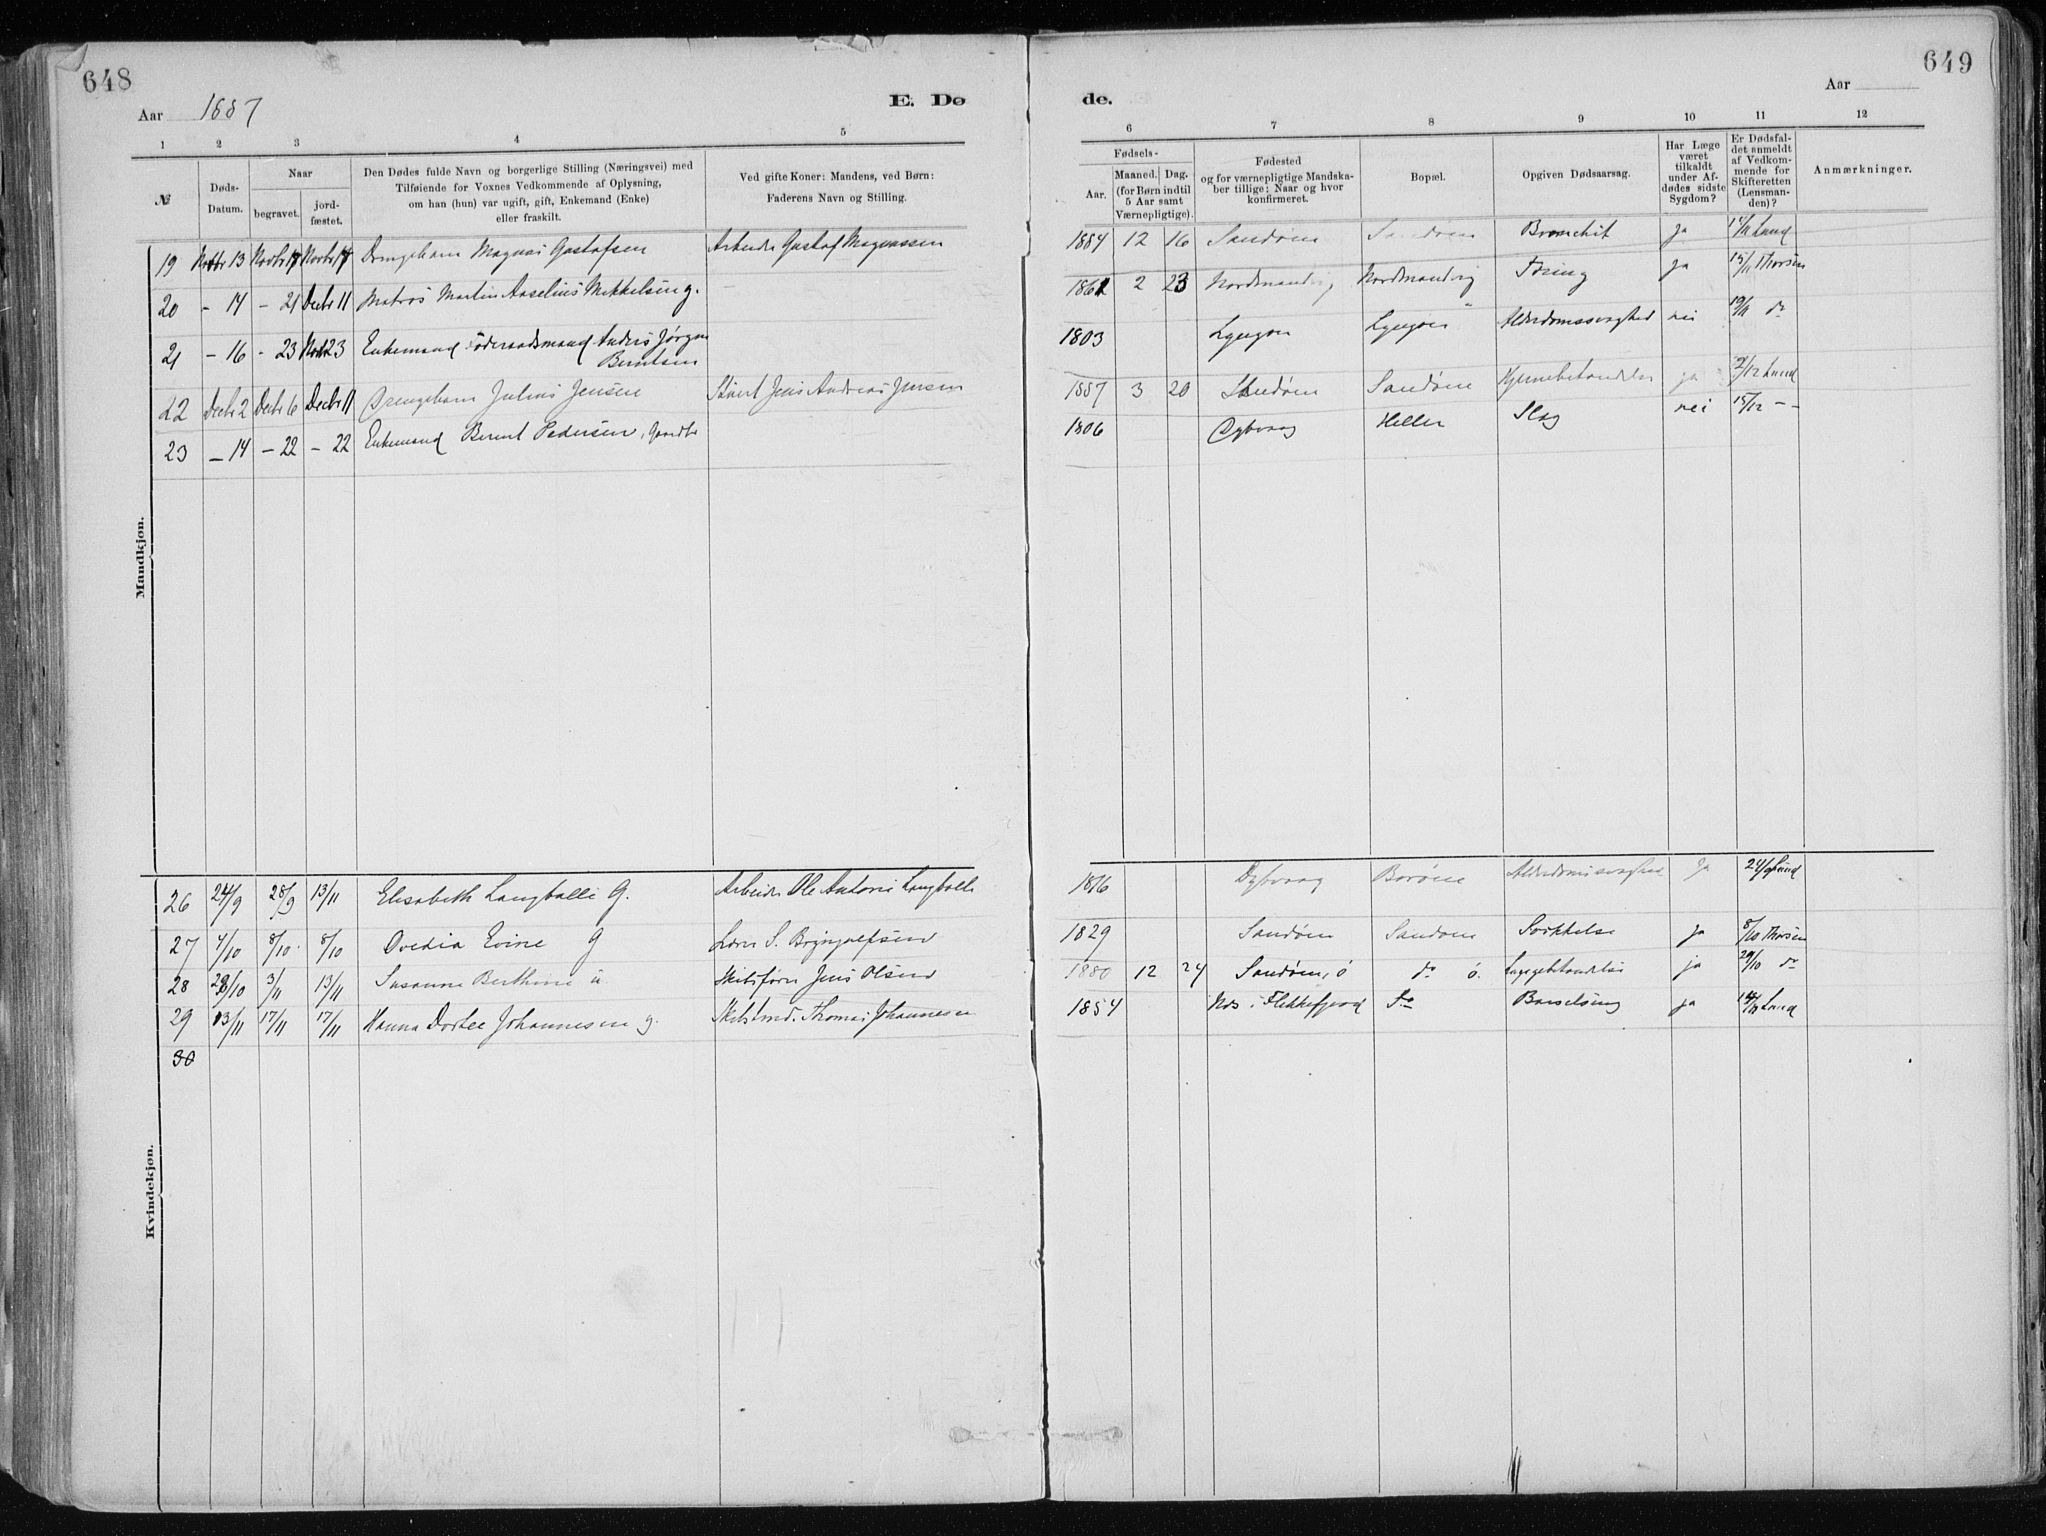 648
649
Aar 1887
E. Dø
de.
Aar
1 2 3 4 5
6 7 8 9 10 11 12
№
Døds-
Datum.
Naar
begravet.
jord-
fæstet.
Den Dødes fulde Navn og borgerlige Stilling (Næringsvei) med
Tilføiende for Voxnes Vedkommende af Oplysning,
om han (hun) var ugift, gift, Enkemand (Enke)
eller fraskilt.
Ved gifte Koner: Mandens, ved Børn:
Faderens Navn og Stilling.
Fødsels-
Aar.
Maaned. Dag.
(for Børn indtil
5 Aar samt
Værnepligtige).
Fødested
og for værnepligtige Mandska-
ber tillige: Naar og hvor
konfirmeret.
Bopæl.
Opgiven Dødsaarsag.
Har Læge
været
tilkaldt
under Af-
dødes sidste
Sygdom?
Er Dødsfal-
det anmeldt
af Vedkom-
mende for
Skifteretten
(Lensman-
den)?
Anmærkninger.
Mandkjøn.
19 Novbr 13 Novbr 17 Novbr 17 Drengebarn Magnus Gustafsen Arbeider Gustaf Magnussen 1884 12 16 Sandøen Sandøen Bronchit ja Lund
20 - 14 - 21 Decbr 11 Matros Martin Anselius Mikkelsen g. 2 23 Nordmandvig Nordmandvig ja 15/11 Thorsen
21 - 16 - 23 Novbr 23 Enkemand Føderaadsmand Anders Jørgen
Berntsen 1803 Lyngøen Lyngøen Alderdomssvaghed nei 19/11 do
22 Decbr 2 Decbr 6 Decbr 11 Drengebarn Julius Jensen Jens Andreas Jensen 1887 3 20 Sandøen Sandøen Hjernebetændelse ja Lund
23 - 14 - 22 - 22 Enkemand Berent Pedersen, Gaardbr 1806 Dybvaag Heller Slag nei 15/12 - -
Kvindekjøn.
26 24/9 28/9 13/11 Elisabeth Langballe g. Arbeider Ole Antoni Langballe 1816 Dybvaag Borøen Alderdomssvaghed ja 24/9 Lund
27 4/10 8/10 8/10 Ovedia Evine g Lods S. Brynjulfsen 1829 Sandøen Sandøen ja 8/10 Thorsen
28 3/11 13/11 Susanne Berthine u. Skibsfører Jens Olsen 1880 12 24 Sandøen, ø do ø. ja 29/10 do
29 13/11 17/11 17/11 Hanna Dortee Johannesen g. Skibstmd. Thomas Johannesen 1854 Næs i Flekkefjord Do Barselseng ja Lund
30